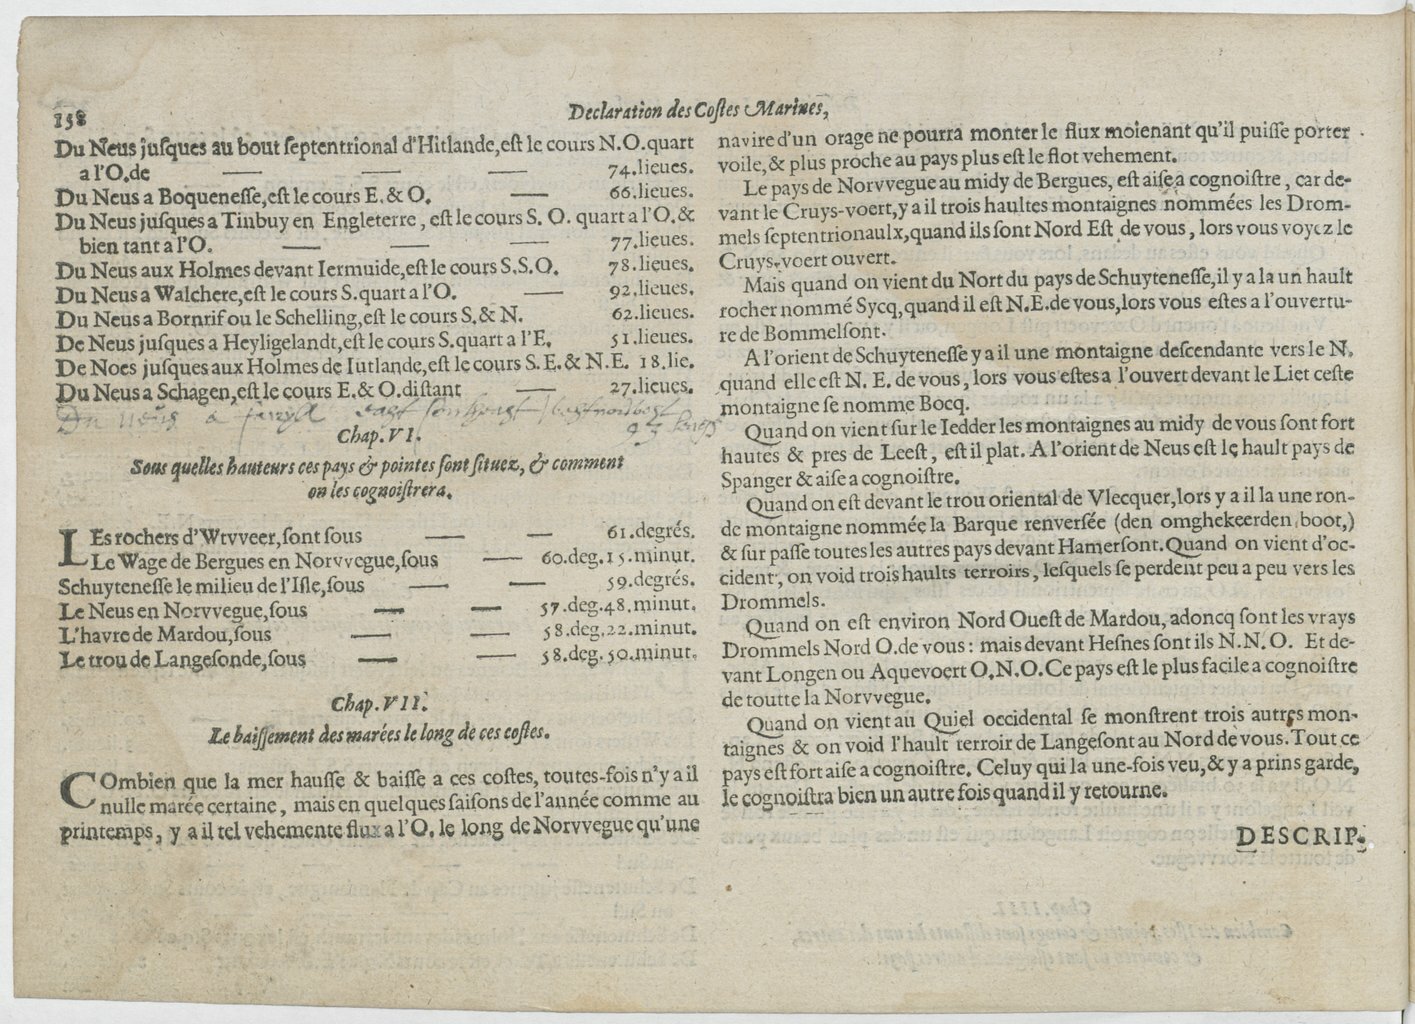 158
Declaration des Costes Marines,
Du Neus jusques au bout septentrional d'Hitlande, est le cours N.O. quart
a l'O. de — — — 74. lieues.
Du Neus a Boquenesse, est le cours E. & O. — 66. lieues.
Du Neus jusques a Tinbuy en Engleterre, est le cours S. O. quart a l'O. &
bien tant a l'O. — — — 77. lieues.
Du Neus aux Holmes devant Iermuide, est le cours S.S.O. 78. lieues.
Du Neus a Walchere, est le cours S. quart a l'O. — 92. lieues.
Du Neus a Bornrif ou le Schelling, est le cours S. & N. 62. lieues.
De Neus jusques a Heyligelandt, est le cours S. quart a l'E. 51. lieues.
De Noes jusques aux Holmes de Iutlande, est le cours S. E. & N.E. 18. lie.
Du Neus a Schagen, est le cours E. & O. distant — 27. lieues.
Du neus a
Chap. VI.
Sous quelles hauteurs ces pays & pointes sont situez, & comment
on les cognoistrera.
LEs rochers d'Wtvveer, sont sous — — 61. degrés.
Le Wage de Bergues en Norvvegue, sous — 60. deg. 15. minut.
Schuytenesse le milieu de l'Isle, sous — — 59. degrés.
Le Neus en Norvvegue, sous — — 57. deg. 48. minut.
L'havre de Mardou, sous — — 58. deg. 22. minut.
Le trou de Langesonde, sous — — 58. deg. 50. minut.
Chap. VII.
Le baissement des marées le long de ces costes.
COmbien que la mer hausse & baisse a ces costes, toutes-fois n'y a il
nulle marée certaine, mais en quelques saisons de l'année comme au
printemps, y a il tel vehemente flux a l'O. le long de Norvvegue qu'une
navire d'un orage ne pourra monter le flux moienant qu'il puisse porter
voile, & plus proche au pays plus est le flot vehement.
Le pays de Norvvegue au midy de Bergues, est aise a cognoistre, car de-
vant le Cruys-voert, y a il trois haultes montaignes nommées les Drom-
mels septentrionaulx, quand ils sont Nord Est de vous, lors vous voyez le
Cruys-voert ouvert.
Mais quand on vient du Nort du pays de Schuytenesse, il y a la un hault
rocher nommé Sycq, quand il est N.E. de vous, lors vous estes a l'ouvertu-
re de Bommelsont.
A l'orient de Schuytenesse y a il une montaigne descendante vers le N.
quand elle est N. E. de vous, lors vous estes a l'ouvert devant le Liet ceste
montaigne se nomme Bocq.
Quand on vient sur le Iedder les montaignes au midy de vous sont fort
hautes & pres de Leest, est il plat. A l'orient de Neus est le hault pays de
Spanger & aise a cognoistre.
Quand on est devant le trou oriental de Vlecquer, lors y a il la une ron-
de montaigne nommée la Barque renversée (den omghekeerden boot,)
& sur passe toutes les autres pays devant Hamersont. Quand on vient d'oc-
cident, on void trois haults terroirs, lesquels se perdent peu a peu vers les
Drommels.
Quand on est environ Nord Ouest de Mardou, adoncq sont les vrays
Drommels Nord O. de vous: mais devant Hesnes sont ils N.N.O. Et de-
vant Longen ou Aquevoert O.N.O. Ce pays est le plus facile a cognoistre
de toutte la Norvvegue.
Quand on vient au Quiel occidental se monstrent trois autres mon-
taignes & on void l'hault terroir de Langesont au Nord de vous. Tout ce
pays est fort aise a cognoistre. Celuy qui la une-fois veu, & y a prins garde,
le cognoistra bien un autre fois quand il y retourne.
DESCRIP-